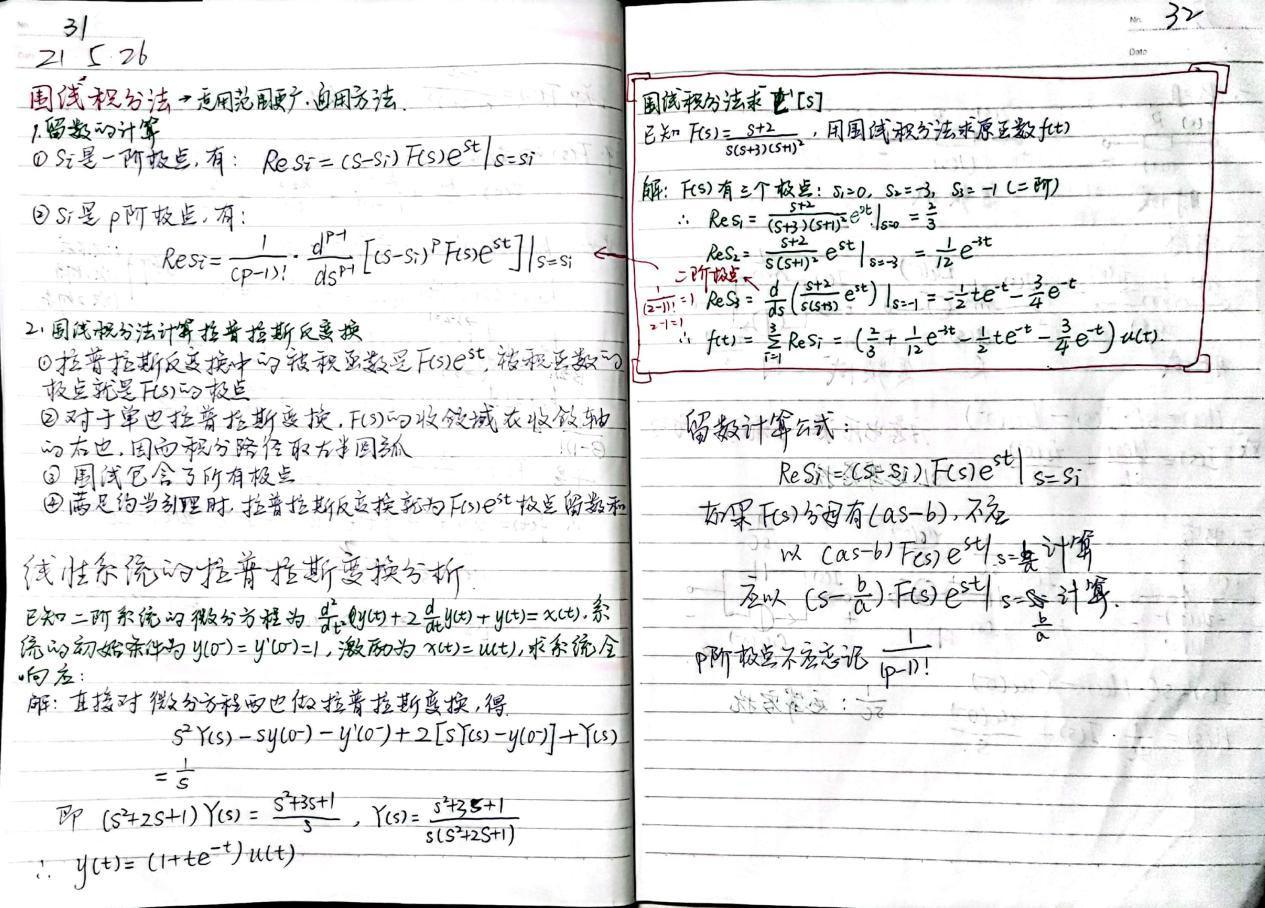 31
21 5. 26
围线积分法→适用范围更广,通用方法.
1. 留数的计算
① Si是一阶极点,有: Re Si = (S-Si) F(s)e^{st}|_{s=si}
② Si是p阶极点,有:
Re Si = \frac{1}{(p-1)!} · \frac{d^{p-1}}{ds^{p-1}} [(s-si)^p F(s)e^{st}]|_{s=si}
2. 围线积分法计算拉普拉斯反变换
①拉普拉斯反变换中的被积函数是F(s)e^{st},被积函数的
极点就是F(s)的极点
②对于单边拉普拉斯变换,F(s)的收敛域在收敛轴
的右边,因而积分路径取左半圆弧
③ 围线包含了所有极点
④满足约当引理时,拉普拉斯反变换就为F(s)e^{st}极点留数和
线性系统的拉普拉斯变换分析
已知二阶系统的微分方程为 \frac{d^2}{dt^2}y(t)+2\frac{d}{dt}y(t)+y(t)=x(t),系
统的初始条件为y(0^-)=y'(0^-)=1,激励为x(t)=u(t),求系统全
响应:
解:直接对微分方程两边做拉普拉斯变换,得
s^2Y(s)-sy(0^-)-y'(0^-)+2[sY(s)-y(0^-)]+Y(s)
= \frac{1}{s}
即 (s^2+2s+1)Y(s)= \frac{s^2+3s+1}{s}, Y(s)= \frac{s^2+3s+1}{s(s^2+2s+1)}
∴ y(t)=(1+te^{-t})u(t)
No. 32
Date
围线积分法求 L^{-1}[s]
已知 F(s)= \frac{s+2}{s(s+3)(s+1)^2},用围线积分法求原函数f(t)
解: F(s)有三个极点: S1=0, S2=-3, S3=-1(二阶)
∴ Re S1= \frac{s+2}{(s+3)(s+1)^2}e^{st}|_{s=0} = \frac{2}{3}
Re S2= \frac{s+2}{s(s+1)^2} e^{st}|_{s=-3} = \frac{1}{12}e^{-3t}
二阶极点
\frac{1}{(2-1)!}=1 Re S3= \frac{d}{ds}(\frac{s+2}{s(s+3)}e^{st})|_{s=-1} = -\frac{1}{2}te^{-t}-\frac{3}{4}e^{-t}
2-1=1
∴ f(t)= \sum_{i=1}^{3} Re Si = (\frac{2}{3}+\frac{1}{12}e^{-3t}-\frac{1}{2}te^{-t}-\frac{3}{4}e^{-t})u(t).
留数计算公式:
Re Si=(s-si) F(s)e^{st}|_{s=si}
如果F(s)分母有(as-b),不应
以 (as-b)F(s)e^{st}|_{s=\frac{b}{a}}计算
应以 (s-\frac{b}{a})·F(s)e^{st}|_{s=\frac{b}{a}}计算.
p阶极点不应忘记 \frac{1}{(p-1)!}